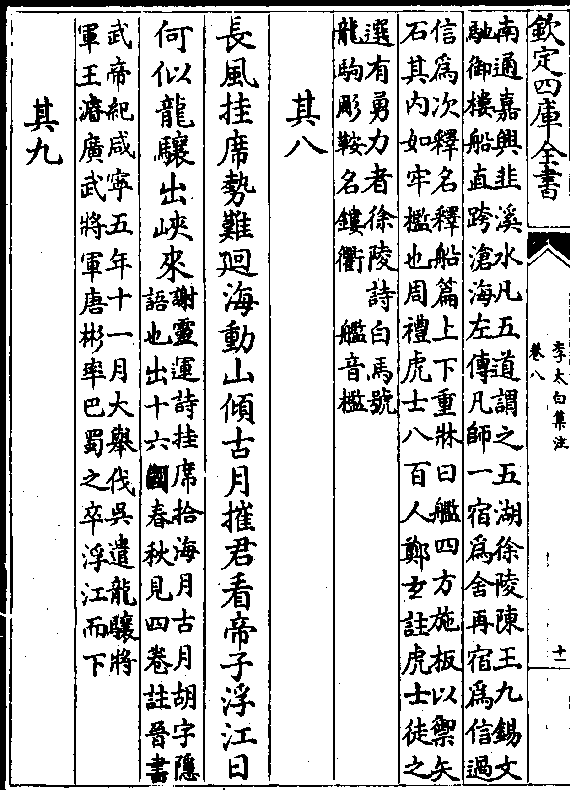 欽定四庫全書
李太白集注
卷八
十一
南通嘉興韭溪水凡五道謂之五湖徐陵陳王九錫文
馳御樓船直跨滄海左傳凡師一宿為舍再宿為信過
信為次釋名釋船篇上下重牀曰艦四方施板以禦矢
石其内如牢檻也周禮虎士八百人鄭玄註虎士徒之
選有勇力者徐陵詩白馬號
龍駒彫鞍名鏤衢　艦音檻
其八
長風挂席勢難廻海動山傾古月摧君看帝子浮江日
何似龍驤出峽來
謝靈運詩挂席拾海月古月胡字隱
語也出十六國春秋見四卷註晉書
武帝紀咸寧五年十一月大舉伐吳遣龍驤將
軍王濬廣武將軍唐彬率巴蜀之卒浮江而下
其九